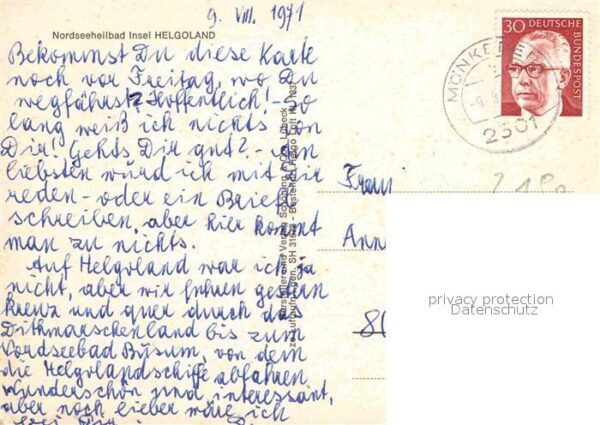 9. VIII. 1971
Nordseeheilbad Insel HELGOLAND
Bekommst Du diese Karte
noch vor Freitag, wo Du
wegfährst? Hoffentlich! So
lang weiß ich nichts von
Dir! Gehts Dir gut? - Am
liebsten würd ich mit Dir
reden - oder ein Brief
schreiben, aber hier kommt
man zu nichts.
Auf Helgoland war ich ja
nicht, aber wir fuhren gestern
kreuz und quer durch das
Dithmarschenland bis zum
Nordseebad Büsum, von dem
die Helgolandschiffe abfahren.
Wunderschön und interessant,
aber noch lieber wäre ich
bei Dir
Verlag Schöning & Co., Lübeck
30 DEUTSCHE
BUNDESPOST
2301
Frau
Ann
privacy protection
Datenschutz